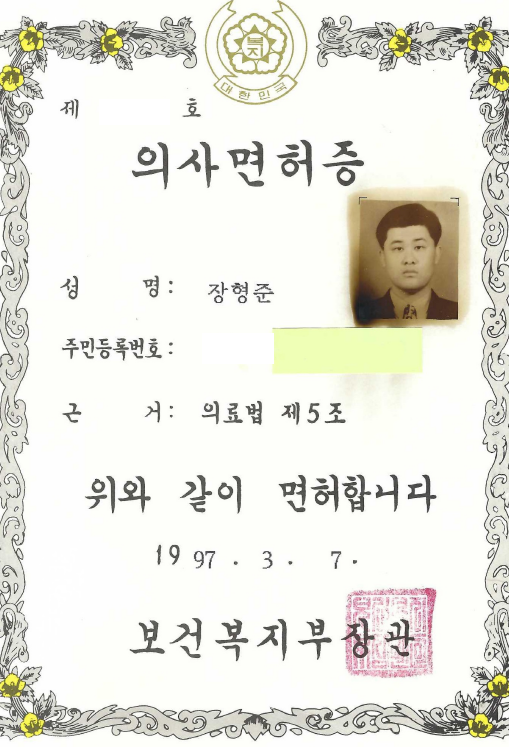 복지
대한민국
제 호
의사면허증
성 명: 장형준
주민등록번호:
근 거: 의료법 제5조
위와 같이 면허합니다
1997. 3. 7.
보건복지부장관